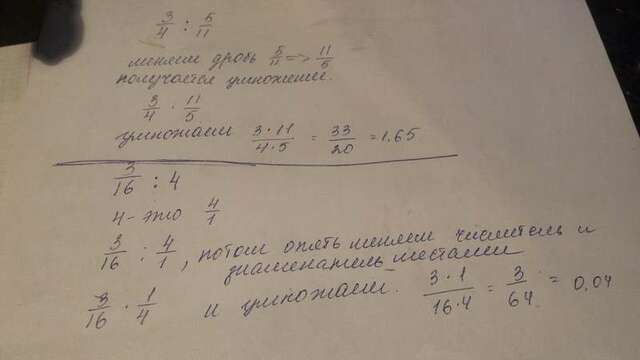 3/4 : 5/11
меняем дробь 5/11 => 11/5
получается умножение.
3/4 · 11/5
умножаем 3·11/4·5 = 33/20 = 1.65
3/16 : 4
4 - это 4/1
3/16 : 4/1, потом опять меняем числитель и
знаменатель местами
3/16 · 1/4 и умножаем. 3·1/16·4 = 3/64 = 0,04